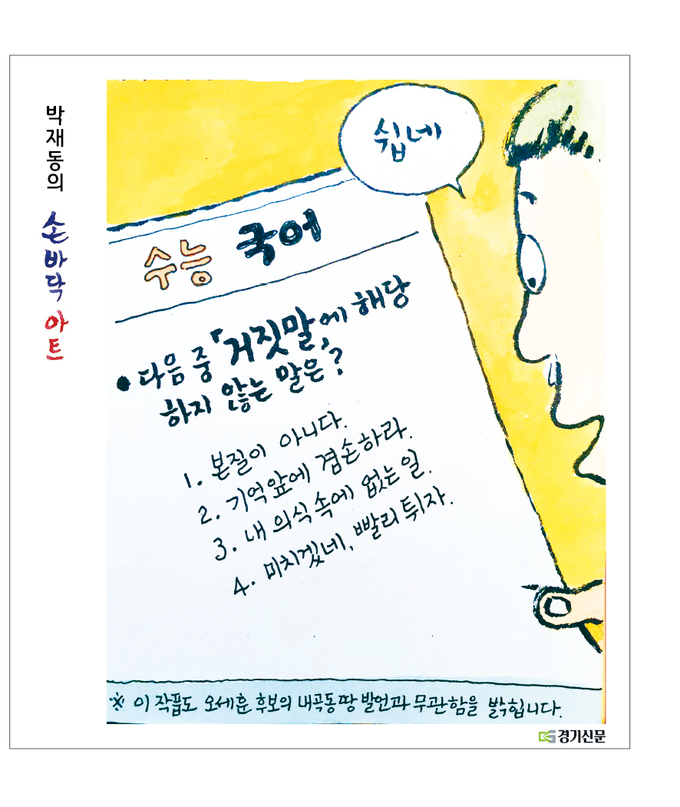 박재동의 손바닥 아트
쉽네
수능 국어
• 다음 중 「거짓말」에 해당
하지 않는 말은?
1. 본질이 아니다.
2. 기억앞에 겸손하라.
3. 내 의식 속에 없는 일.
4. 미치겠네, 빨리 튀자.
※ 이 작품도 오세훈 후보의 내곡동땅 발언과 무관함을 밝힙니다.
경기신문